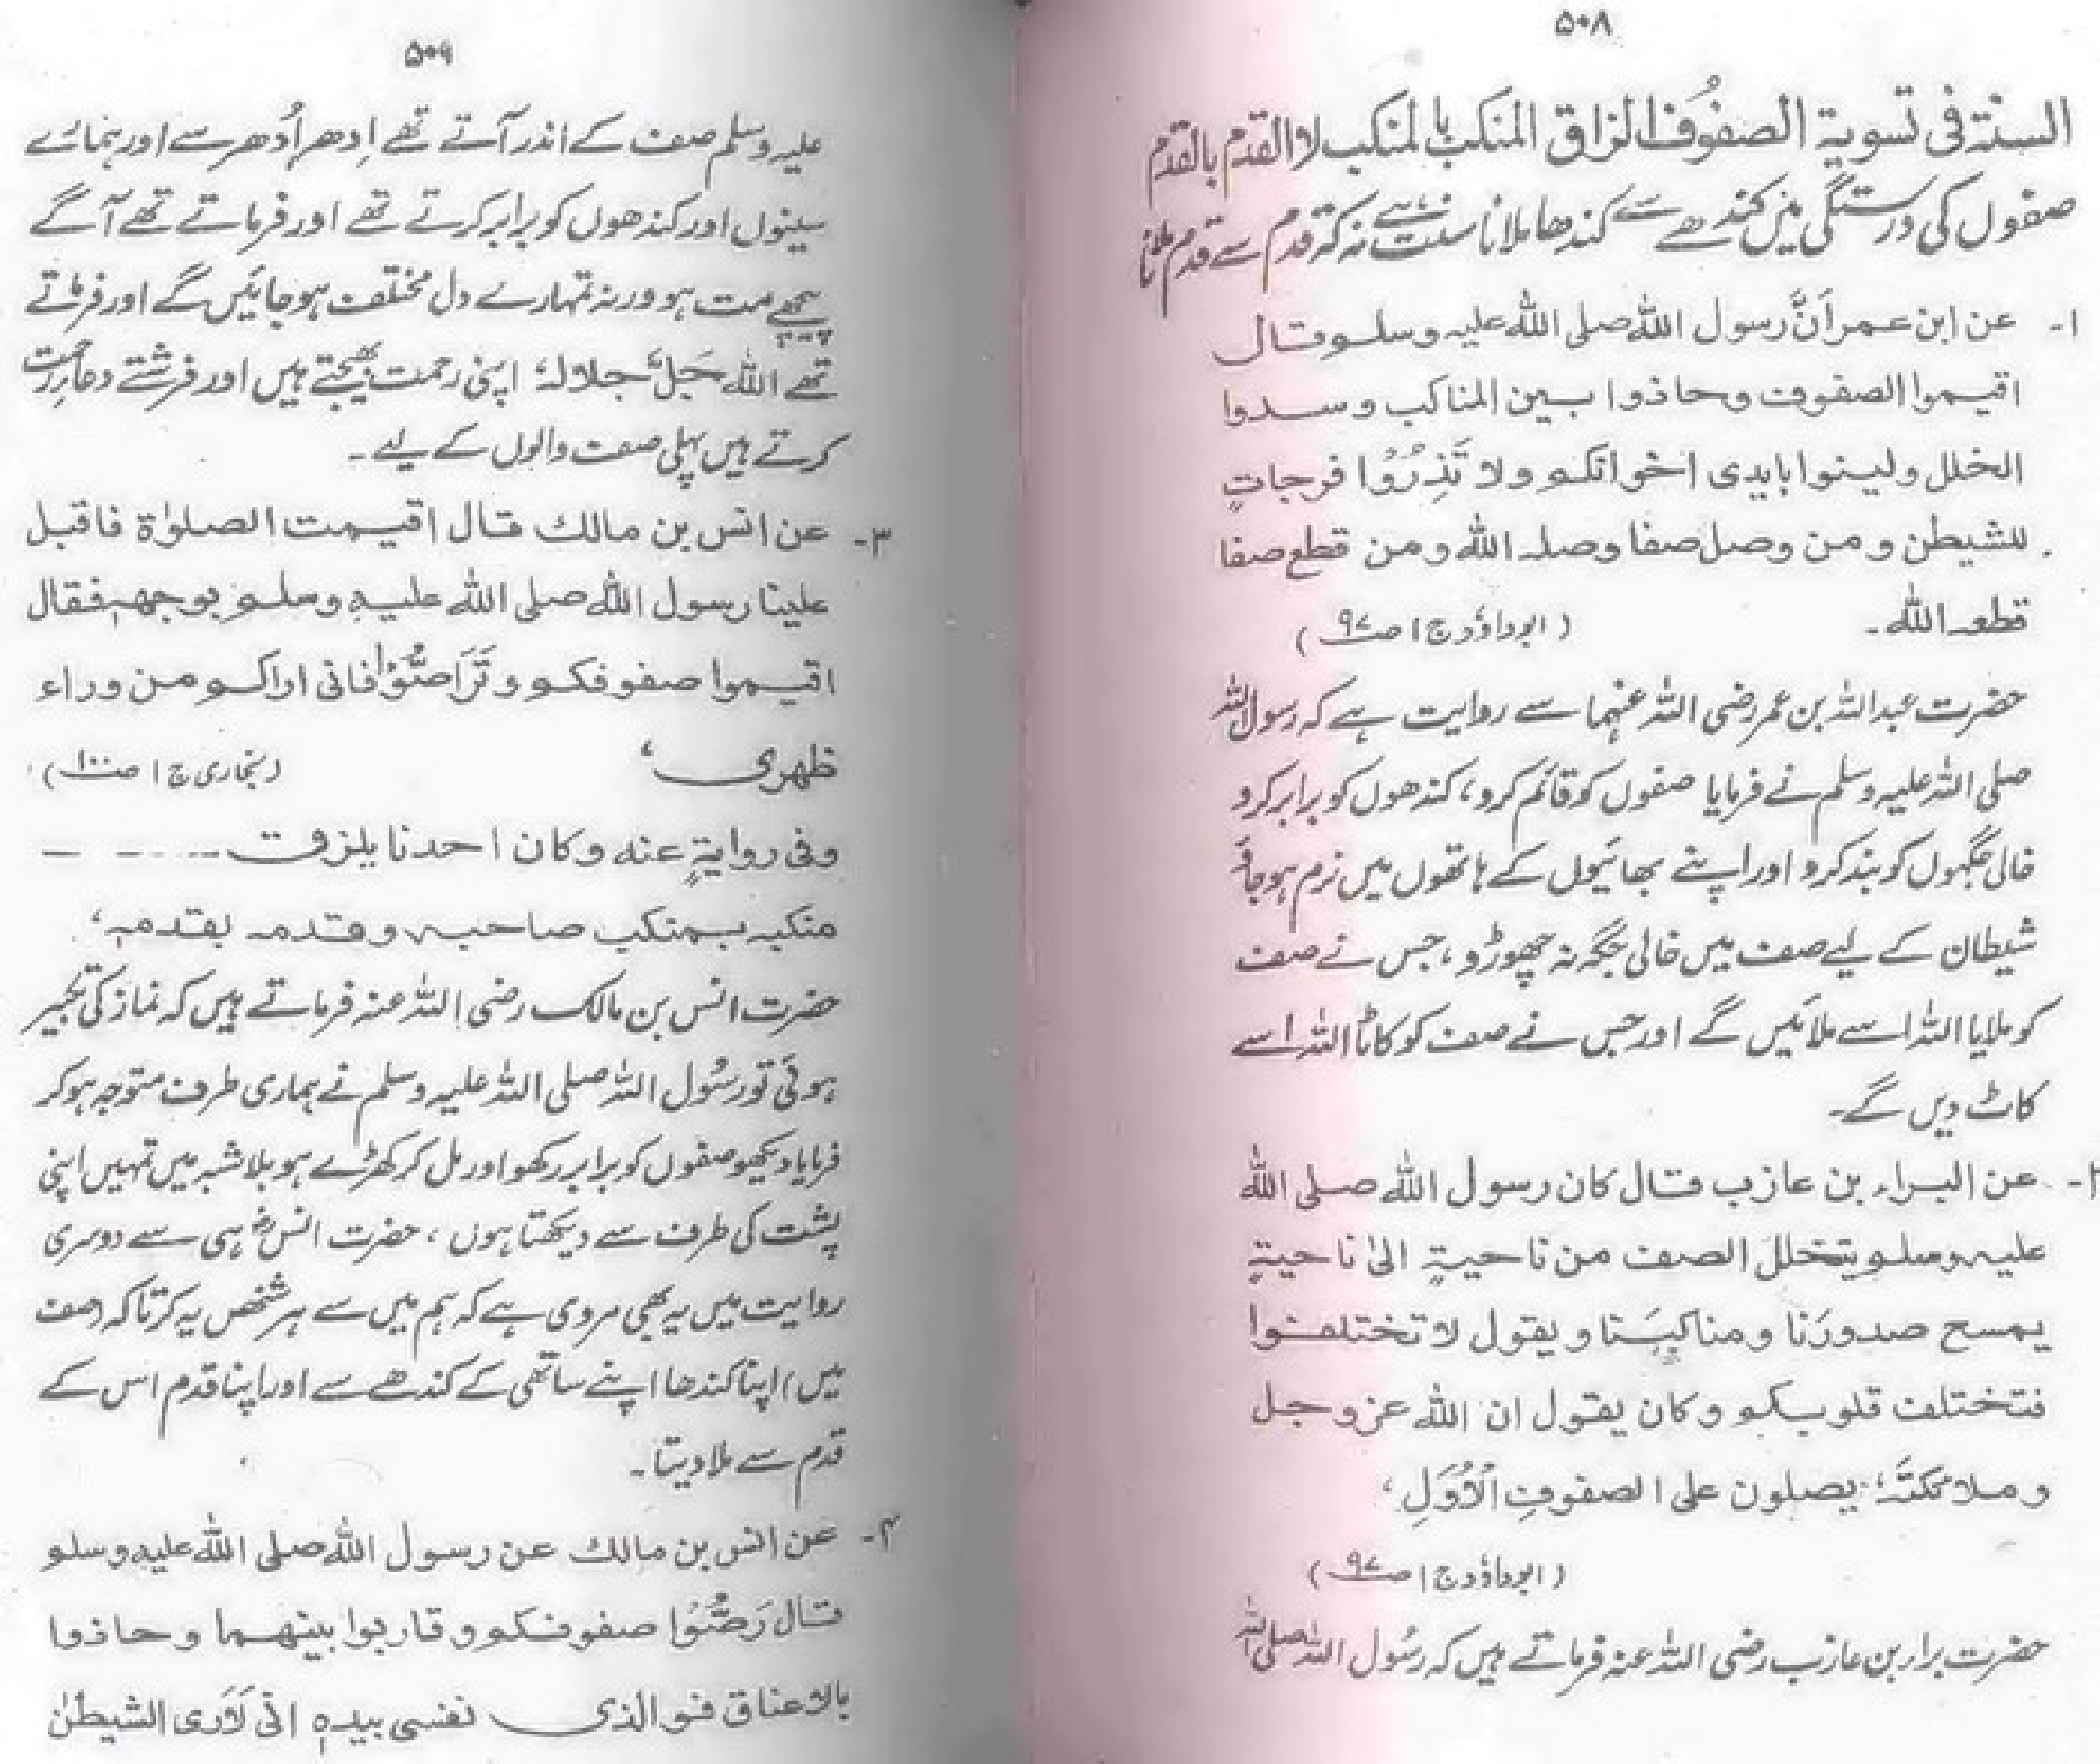 ۵۰۸
السنۃ فی تسویۃ الصفُوف الزاق المنکب بالمنکب لا القدم بالقدم
صفوں کی درستگی میں کندھے سے کندھا ملانا سنت ہے نہ کہ قدم سے قدم ملانا
۱۔ عن ابن عمر اَنَّ رسول اللہ صلی اللہ علیہ وسلم قال
اقیموا الصفوف وحاذوا بین المناکب وسدوا
الخلل ولینوا بایدی اخوانکم ولا تَذِرُوْا فرجاتٍ
للشیطن ومن وصل صفا وصلہ اللہ ومن قطع صفا
قطعہ اللہ۔ (ابوداؤد ج۱ ص۹۷)
حضرت عبداللہ بن عمر رضی اللہ عنہما سے روایت ہے کہ رسول اللہ
صلی اللہ علیہ وسلم نے فرمایا صفوں کو قائم کرو، کندھوں کو برابر کرو
خالی جگہوں کو بند کرو اور اپنے بھائیوں کے ہاتھوں میں نرم ہو جاؤ
شیطان کے لیے صف میں خالی جگہ نہ چھوڑو، جس نے صف
کو ملایا اللہ اسے ملائیں گے اور جس نے صف کو کاٹا اللہ اسے
کاٹ دیں گے۔
۲۔ عن البراء بن عازب قال کان رسول اللہ صلی اللہ
علیہ وسلم یتخلل الصف من ناحیۃٍ الیٰ ناحیۃٍ
یمسح صدورَنا ومناکبَنا ویقول لا تختلفوا
فتختلف قلوبکم وکان یقول ان اللہ عزوجل
وملائکتَہٗ یصلون علی الصفوفِ الْاُوَلِ،
(ابوداؤد ج۱ ص۹۷)
حضرت براء بن عازب رضی اللہ عنہ فرماتے ہیں کہ رسُول اللہ صلی اللہ
۵۰۹
علیہ وسلم صف کے اندر آتے تھے اِدھر اُدھر سے اور ہمارے
سینوں اور کندھوں کو برابر کرتے تھے اور فرماتے تھے آگے
پیچھے مت ہو ورنہ تمہارے دل مختلف ہو جائیں گے اور فرماتے
تھے اللہ جَلَّ جلالہٗ اپنی رحمت بھیجتے ہیں اور فرشتے دعاءِ رحمت
کرتے ہیں پہلی صف والوں کے لیے۔
۳۔ عن انس بن مالک قال اقیمت الصلوٰۃ فاقبل
علینا رسول اللہ صلی اللہ علیہ وسلم بوجہہٖ فقال
اقیموا صفوفکم وتَرَاصُّوْا فانی اراکم من وراء
ظہری، (بخاری ج۱ ص۱۰۰)
وفی روایۃٍ عنہ وکان احدنا یلزق
منکبہ بمنکب صاحبہ وقدمہ بقدمہٖ،
حضرت انس بن مالک رضی اللہ عنہ فرماتے ہیں کہ نماز کی تکبیر
ہوئی تو رسُول اللہ صلی اللہ علیہ وسلم نے ہماری طرف متوجہ ہو کر
فرمایا دیکھو صفوں کو برابر رکھو اور مل کر کھڑے ہو بلاشبہ میں تمہیں اپنی
پشت کی طرف سے دیکھتا ہوں، حضرت انسؓ ہی سے دوسری
روایت میں یہ بھی مروی ہے کہ ہم میں سے ہر شخص یہ کرتا کہ (صف
میں) اپنا کندھا اپنے ساتھی کے کندھے سے اور اپنا قدم اس کے
قدم سے ملا دیتا۔
۴۔ عن انس بن مالک عن رسول اللہ صلی اللہ علیہ وسلم
قال رَصُّوْا صفوفکم وقاربوا بینھما وحاذوا
بالاعناق فوالذی نفسی بیدہٖ انی لَاَرَی الشیطٰن